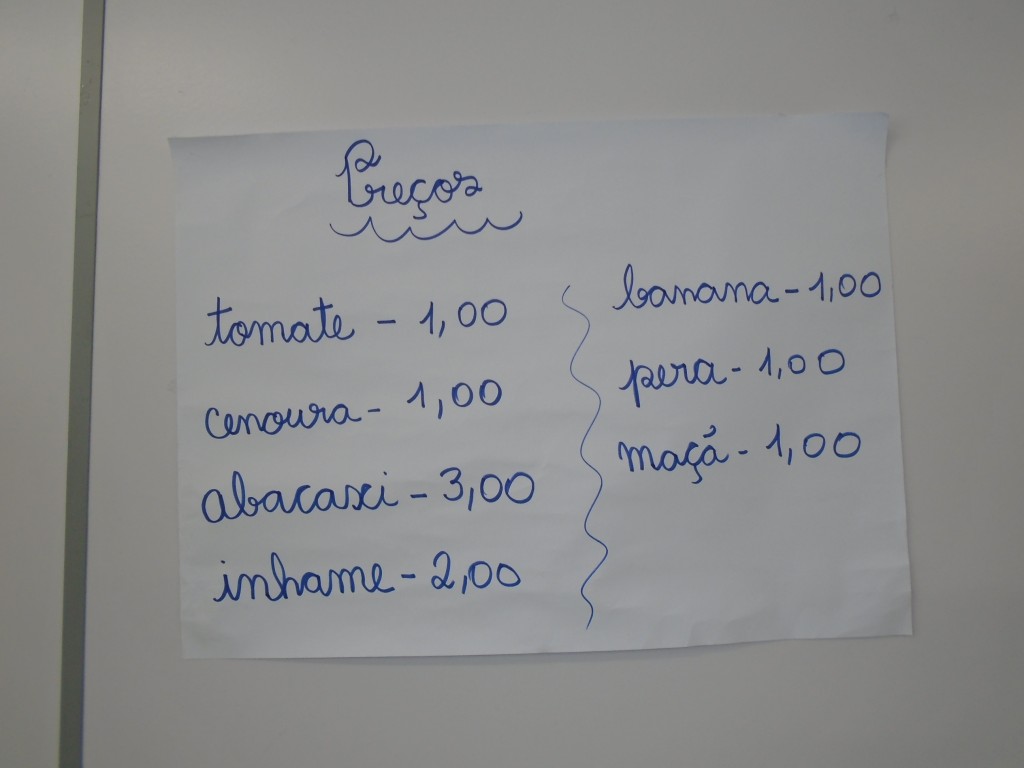 Preços
tomate - 1,00
cenoura - 1,00
abacaxi - 3,00
inhame - 2,00
banana - 1,00
pera - 1,00
maçã - 1,00